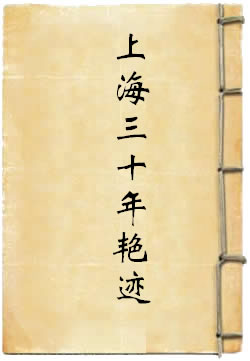 上海三十年艳迹